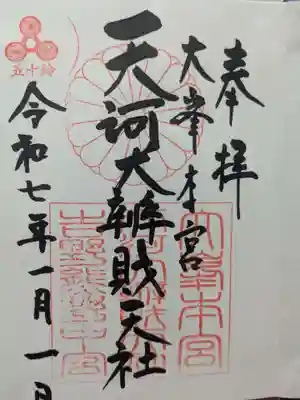 奉拝
大峯本宮
天河大辨財天社
令和七年一月一日
五十鈴
大峯本宮
吉野熊野中宮